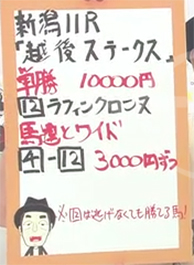 新潟11R
「越後ステークス」
単勝 10000円
12 ラフィンクロンヌ
馬連とワイド
4-12 3000円ずつ
※12は逃げなくても勝てる馬!